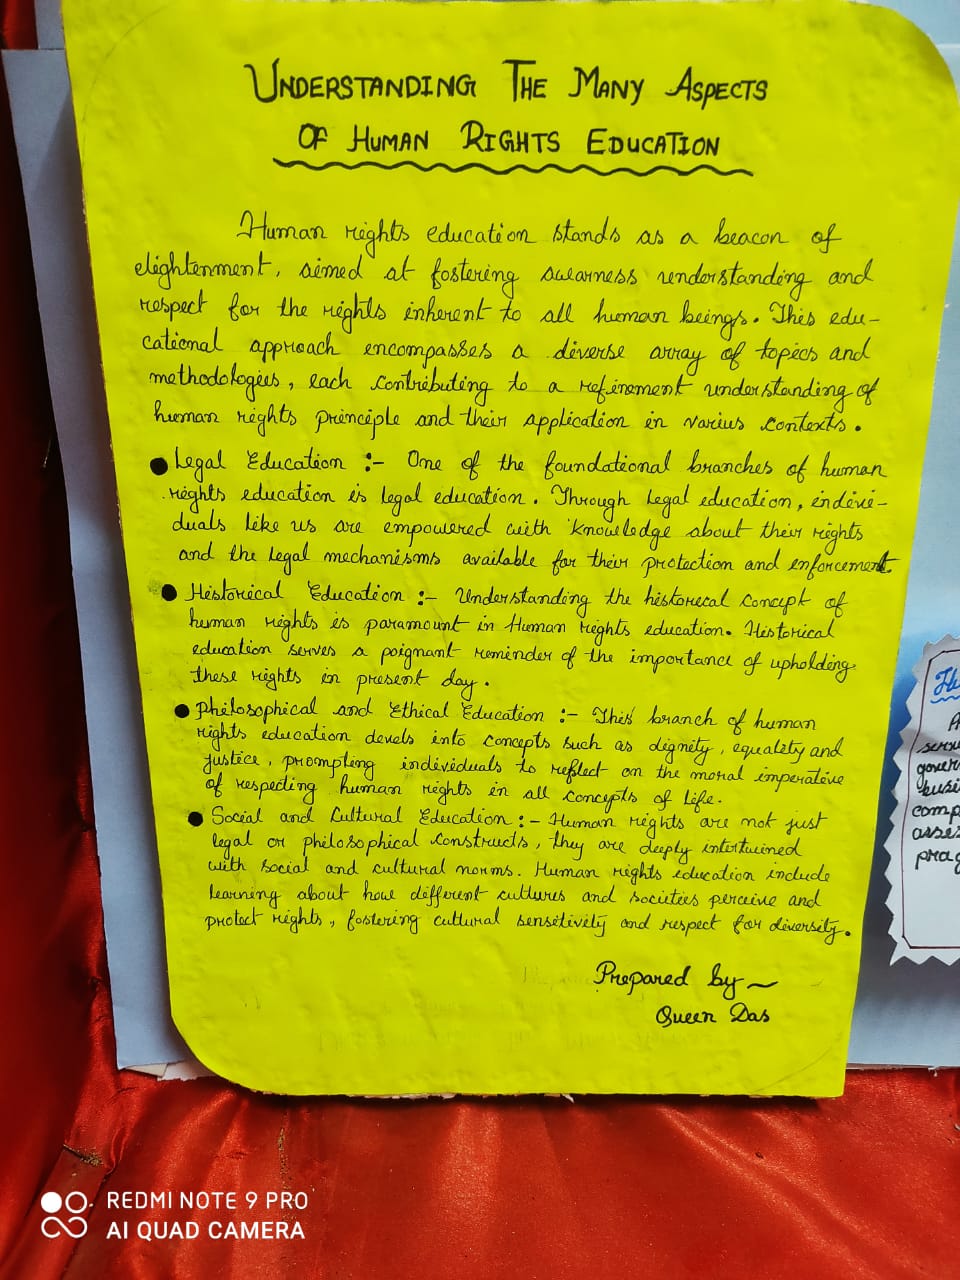 UNDERSTANDING THE MANY ASPECTS
OF HUMAN RIGHTS EDUCATION
Human rights education stands as a beacon of
elightenment, aimed at fostering awarness understanding and
respect for the rights inherent to all human beings. This edu-
cational approach encompasses a diverse array of topics and
methodologies, each contributing to a refinement understanding of
human rights principle and their application in varius contexts.
● Legal Education :- One of the foundational branches of human
rights education is legal education. Through legal education, indivi-
duals like us are empowered with knowledge about their rights
and the legal mechanisms available for their protection and enforcement.
● Historical Education :- Understanding the historical concept of
human rights is paramount in Human rights education. Historical
education serves a poignant reminder of the importance of upholding
these rights in present day.
● Philosophical and Ethical Education :- This branch of human
rights education devels into concepts such as dignity, equality and
justice, prompting individuals to reflect on the moral imperative
of respecting human rights in all concepts of life.
● Social and Cultural Education :- Human rights are not just
legal or philosophical constructs, they are deeply intertwined
with social and cultural norms. Human rights education include
learning about how different cultures and societies perceive and
protect rights, fostering cultural sensitivity and respect for diversity.
Prepared by ~
Queen Das
REDMI NOTE 9 PRO
AI QUAD CAMERA